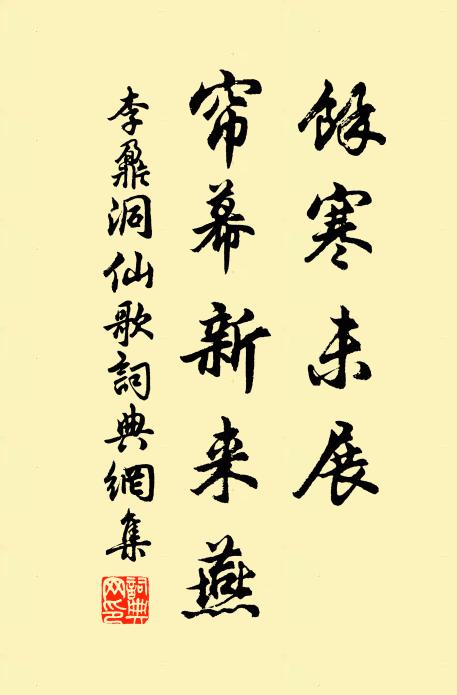 餘寒未展
帘幕新来燕
李鼐洞仙歌詞典網集
詞典网印